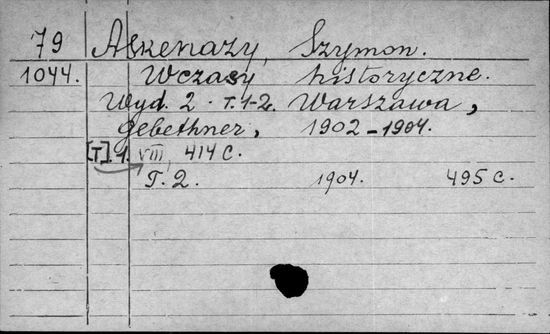 79 Askenazy, Szymon.
1044. Wczasy historyczne.
Wyd. 2. T. 1-2. Warszawa,
Gebethner, 1902-1904.
[T]. 1. VIII, 414 c.
T. 2. 1904. 495 c.